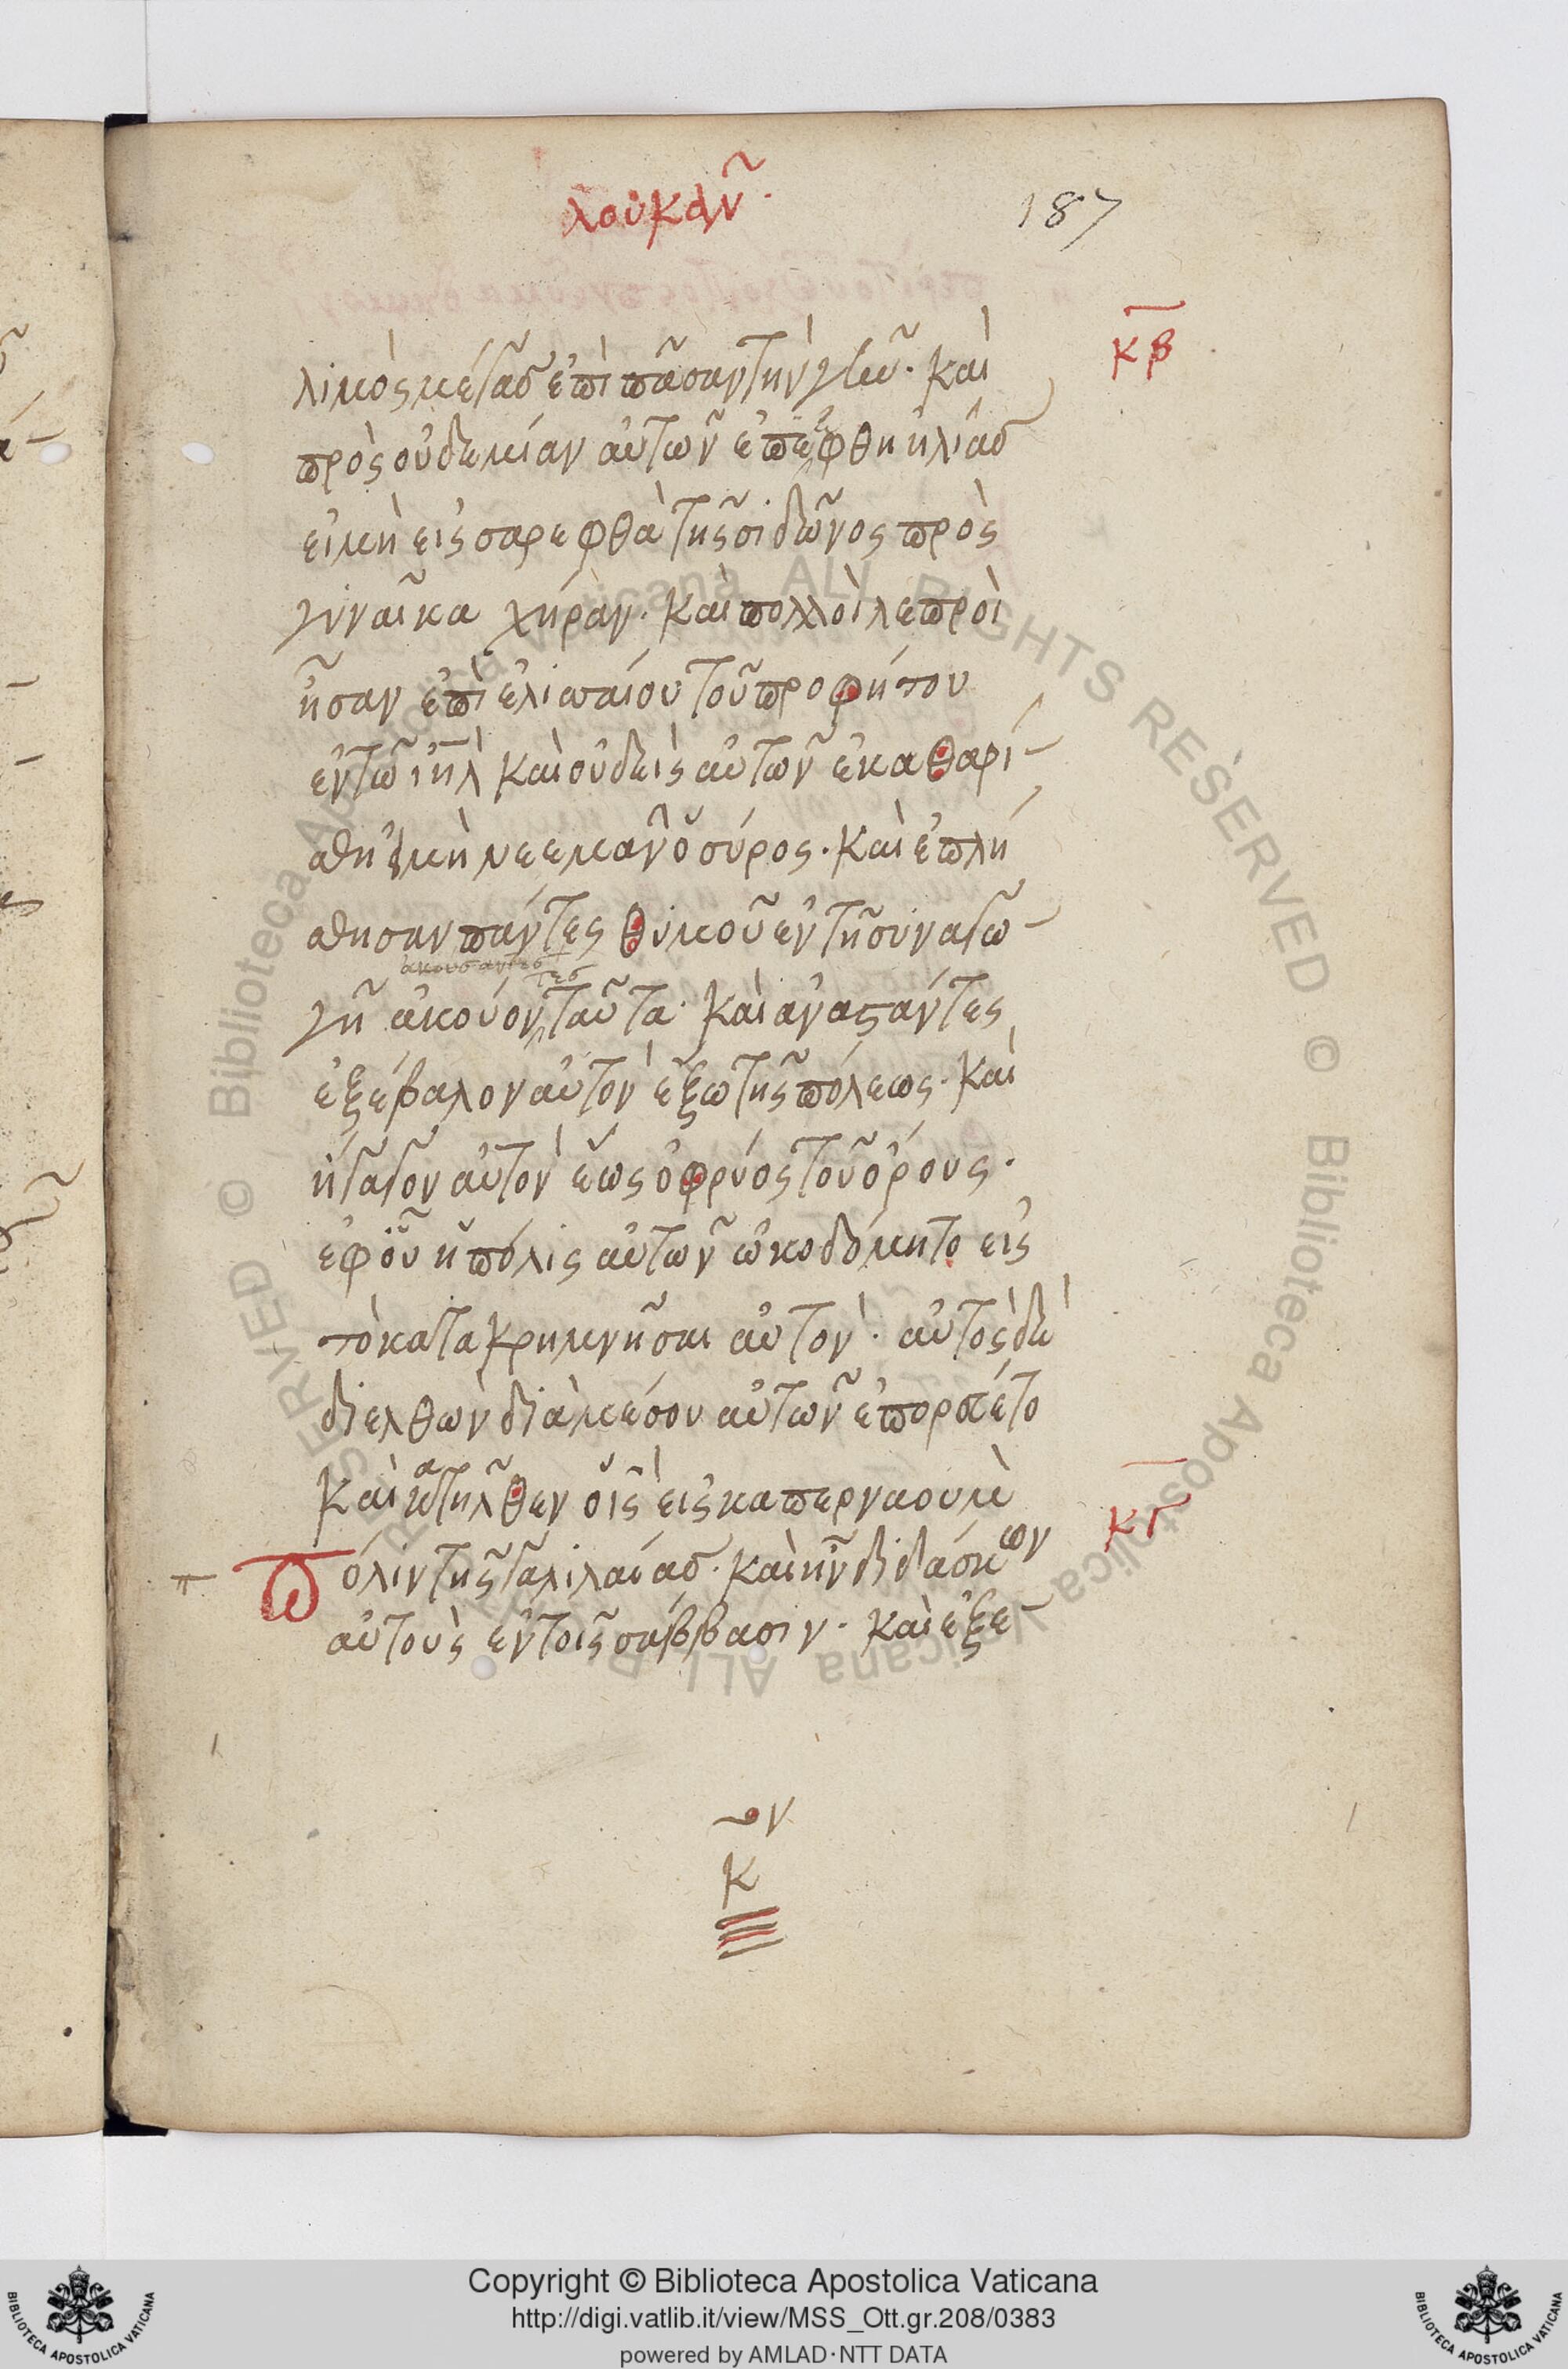 λουκᾶν
187
κβ
λιμὸς μέγας ἐπὶ πᾶσαν τὴν γῆν· καὶ
πρὸς οὐδεμίαν αὐτῶν ἐπέμφθη ἠλίας
εἰ μὴ εἰς σαρεφθὰ τῆς σιδῶνος πρὸς
γυναῖκα χήραν· καὶ πολλοὶ λεπροὶ
ἦσαν ἐπὶ ἐλισσαίου τοῦ προφήτου
ἐν τῶ ιηλ καὶ οὐδεὶς αὐτῶν ἐκαθαρί
σθη εἰ μὴ νεεμὰν ὁ σύρος· καὶ ἐπλή
σθησαν πάντες θυμοῦ ἐν τῆ συναγω
ἀκούσαντες τες
γῆ ἀκούον ταῦτα· καὶ ἀναστάντες
ἐξέβαλον αὐτὸν ἔξω τῆς πόλεως· καὶ
ἤγαγον αὐτὸν ἕως ὀφρύος τοῦ ὄρους·
ἐφ οὗ ἡ πόλις αὐτῶν ὠκοδόμητο εἰς
τὸ κατακρημνῆσαι αὐτὸν· αὐτὸς δὲ
διελθὼν διὰ μέσου αὐτῶν ἐπορεύετο
καὶ κατῆλθεν ὁ ις εἰς καπερναοὺμ
κγ
π πόλιν τῆς γαλιλαίας· καὶ ἦν διδάσκων
αὐτοὺς ἐν τοῖς σάββασιν· καὶ ἐξε
κ
Copyright © Biblioteca Apostolica Vaticana
http://digi.vatlib.it/view/MSS_Ott.gr.208/0383
powered by AMLAD·NTT DATA